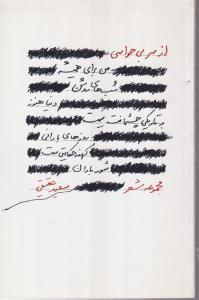 از سر بی حواسی
من برای همیشه
شب های روشن
دنیا هنوز
به تاریکی چشمانت نیست
روزهای بارانی
کهنه حکایتی ست
شور باران
مجموعه شعر
سعید عقیقی